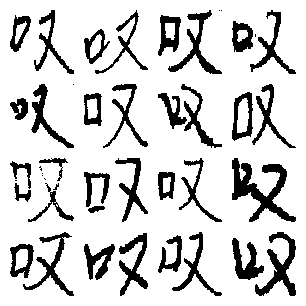 叹叹叹叹
叹叹叹叹
叹叹叹叹
叹叹叹叹